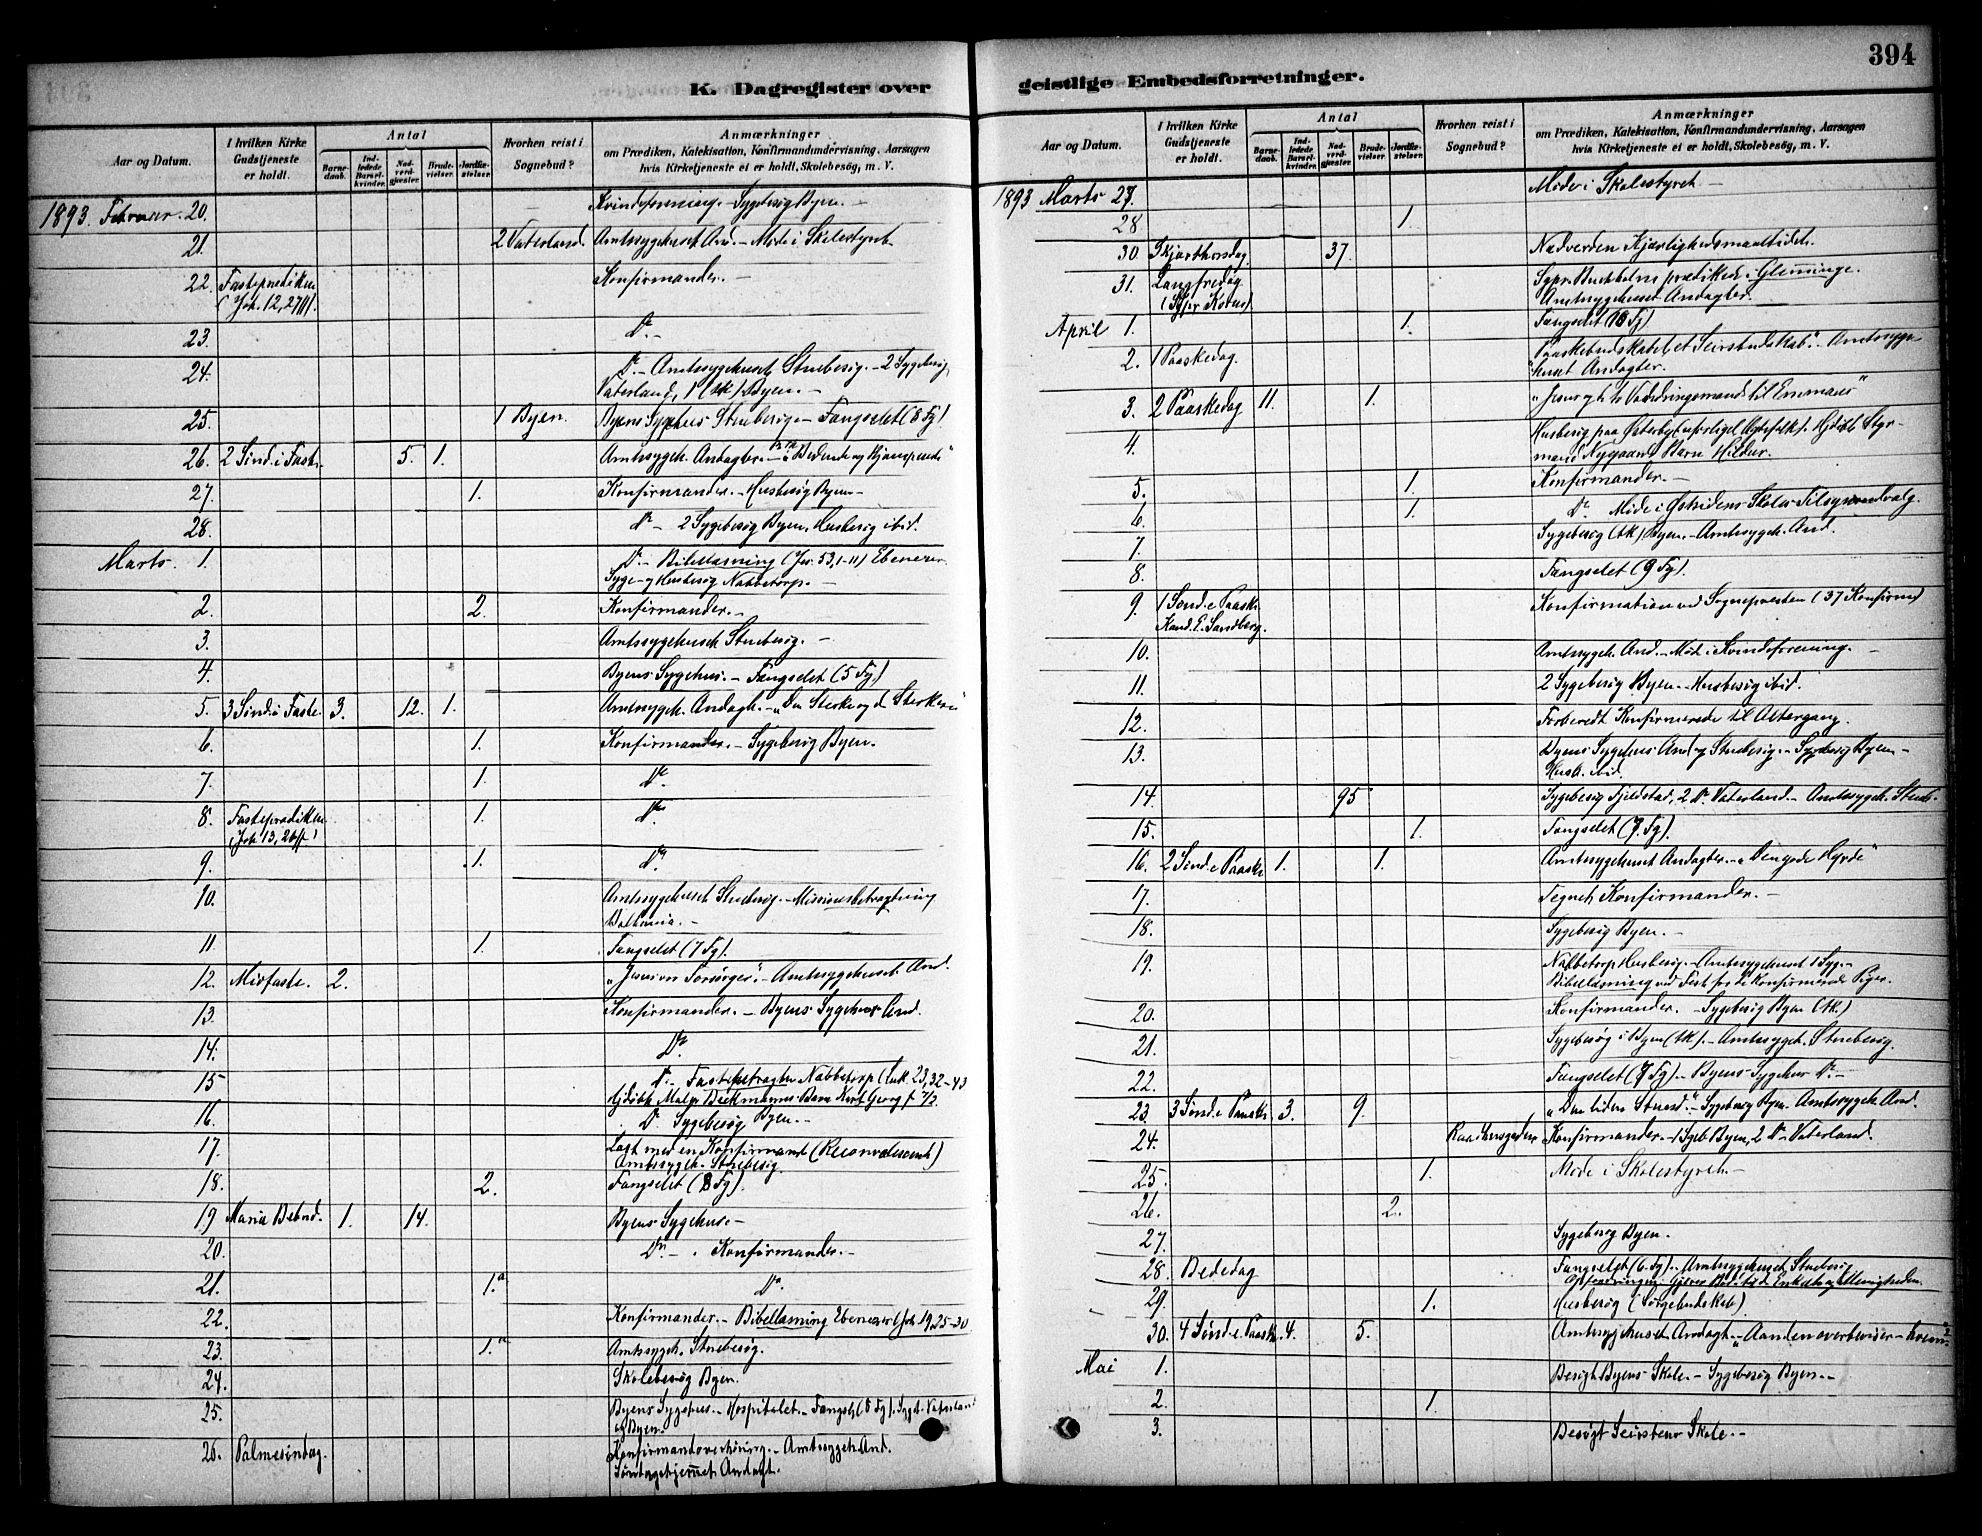 394
K. Dagregister over geistlige Embedsforretninger.
Aar og Datum.
I hvilken Kirke Gudstjeneste er holdt.
Antal
Barnedaab.
Indledede Barselkvinder.
Nadverdgjester.
Brudevielser.
Jordfæstelser.
Hvorhen reist i Sognebud?
Anmærkninger
om Prædiken, Katekisation, Konfirmandundervisning, Aarsagen
hvis Kirketjeneste ei er holdt, Skolebesög, m. V.
1893. Februar. 20. Kvindeforening. - Sygebesög Byen. -
21. 2 Vaterland. Amtssygehuset And. - Möde i Skolestyret.
22. Fasteprædiken Konfirmander. -
(Joh. 12, 27 ff).
23. Do. -
24. Do. - Amtssygehuset Stuebesög. - 2 Sygebesög
Vaterland, 1 (sk) Byen. -
25. 1 Byen. Byens Sygehus Stuebesög - Fængselet (8 Fg)
26. 2 Sönd. i Faste. 5. 1. Amtssygeh. Andagter. - „Bedende og Kjæmpende“
27. 1. Konfirmander. - Husbesög Byen. -
28. Do - 2 Sygebesög Byen, Husbesög ibid.
Marts. 1. Do. - Bibellæsning (Jes. 53, 1-11) Ebenezer.
Syge- og Husbesög Nabbetorp. -
2. 2. Konfirmander. -
3. Amtssygehuset Stuebesög. -
4. Byens Sygehus. - Fængselet (5 Fg.)
5. 3 Sönd. i Faste. 3. 12. 1. Amtssygeh. Andagt. - „Den Sterke og d. Sterkere“
6. 1. Konfirmander. - Sygebesög Byen.
7. 1. Do.
8. Fasteprædiken 1. Do.
(Joh. 13, 26 ff)
9. 1. Do.
10. Amtssygehuset Stuebesög. - Missionsbetragtning
Bethania. -
11. 1. Fængselet (7 Fg).
12. Midfaste. 2. „Jesus vor Forsörger“. - Amtssygehuset And.
13. Konfirmander. - Byens Sygehus And.
14. Do.
15 Do. - Fastebetragtn. Nabbetorp (Luk. 23, 32-43
Hjdöbt Maler Beckmanns Barn Kurt Georg f.
16. Do Sygebesög Byen. -
17. Læst med en Konfirmand (Reconvalescent)
Amtssygeh. Stuebesög.
18. 2. Fængselet (8 Fg).
19 Maria Bebud. 1. 14. Byens Sygehus. -
20. Do. - Konfirmander. -
21. 1. Do
22. Konfirmander. - Bibellæsning Ebenezer (Joh 19, 25-30
23. 1. Amtssygeh. Stuebesög.
24. Skolebesög Byen.
25. Byens Sygehus. - Hospitalet. - Fængsl. (8 Fg). Sygeb. Vaterland
og Byen.
26. Palmesöndag. Konfirmandoverhöring. - Amtssygeh. And.
Söndagshjemmet Andagt.
Aar og Datum.
I hvilken Kirke Gudstjeneste er holdt.
Antal
Barnedaab.
Indledede Barselkvinder.
Nadverdgjester.
Brudevielser.
Jordfæstelser.
Hvorhen reist i Sognebud?
Anmærkninger
om Prædiken, Katekisation, Konfirmandundervisning, Aarsagen
hvis Kirketjeneste ei er holdt, Skolebesög, m. V.
1893 Marts 27. Möde i Skolestyret -
28 1.
30. Skjærthorsdag 37. Nadverden Kjærlighedsmaaltidet.
31. Langfredag. Sgpr. prædikede i Glemminge.
(Sgpr. ) Amtssygehuset Andagter.
April 1. 1. Fængselet (10 Fg)
2. 1 Paaskedag. Paaskebudskabet, et Seirsbudskab“. - Amtssyge-
huset Andagter.
3. 2 Paaskedag 11. 1. „Jesus gik to Vandringsmænd til Emmaus“
4. Husbesög paa Österby
Nygaards Barn Hildur.
5. 1. Konfirmander. -
6. 1. Do. Möde i Östsidens Skoles Tilsynsudvalg.
7. Sygebesög (sk) Byen. - Amtssygeh. And.
8. Fængselet (9 Fg).
9. 1 Sönd. e. Paaske. Konfirmation ved Sognepresten (37 Konfirm)
Kand. E. Sandberg.
10. Amtssygeh. And. - Möde i Kvindeforening. -
11. 2 Sygebesög Byen - Husbesög ibid.
12. Forberedt Konfirmerede til Altergang.
13. Byens Sygehus And. og Stuebesög. - Sygebesög Byen -
Husb. ibid.
14. 95 Sygebesög Fjeldstad, 2 Do. Vaterland. - Amtssygeh. Stueb.
15. 1. Fængselet (7 Fg).
16. 2 Sönd. e. Paaske 1. 1. Amtssygehuset Andagter. - „Den gode Hyrde“
17. Tegnet Konfirmander. -
18. Sygebesög Byen. -
19. Nabbetorp Husbesög. - Amtssygehuset 1 Syg. -
Bibellæsning ved Fest for de Konfirmerede Piger.
20. Konfirmander. - Sygebesög Byen (sk.)
21. Sygebesög i Byen (sk). - Amtssygeh. Stuebesög.
22. Fængselet (7 Fg) - Byens Sygehus Do. -
23. 3 Sönd. e. Paaske 3. 9. „Den liden Stund“. - Sygebesög Byen. Amtssygeh. And.
24. Konfirmander. - 1 Sygeb Byen, 2 Do. Vaterland.
25. 1. Möde i Skolestyret. -
26. 2.
27. Sygebesög Byen.
28. Bededag Fængselet (6 Fg). - Amtssygehuset Stuebesög
29. 1. Husbesög (Sörgebudskab)
30. 4 Sönd. e. Paaske. 4. 5. Amtssygehuset Andagt. - „Aanden overbeviser - hvem?“
Mai 1. Besögt Byens Skole. - Sygebesög Byen. -
2. 1.
3. Besögt Seirsteens Skole. -